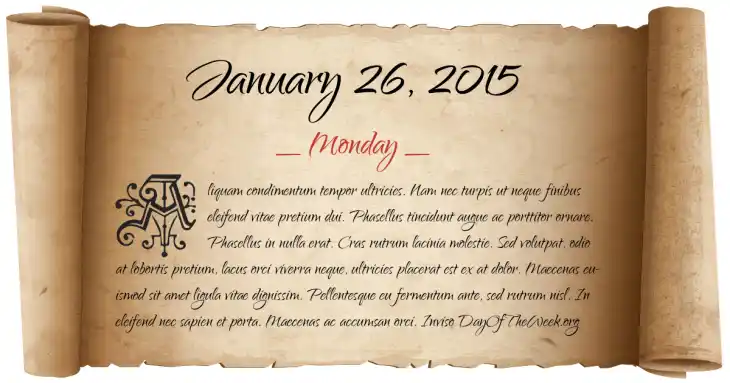 January 26, 2015
_ Monday _
Aliquam condimentum tempor ultricies. Nam nec turpis ut neque finibus
eleifend vitae pretium dui. Phasellus tincidunt augue ac porttitor ornare.
Phasellus in nulla erat. Cras rutrum lacinia molestie. Sed volutpat, odio
at lobortis pretium, lacus orci viverra neque, ultricies placerat est ex at dolor. Maecenas eu-
ismod sit amet ligula vitae dignissim. Pellentesque eu fermentum ante, sed rutrum nisl. In
eleifend nec sapien et porta. Maecenas ac accumsan orci. Inviso DayOfTheWeek.org